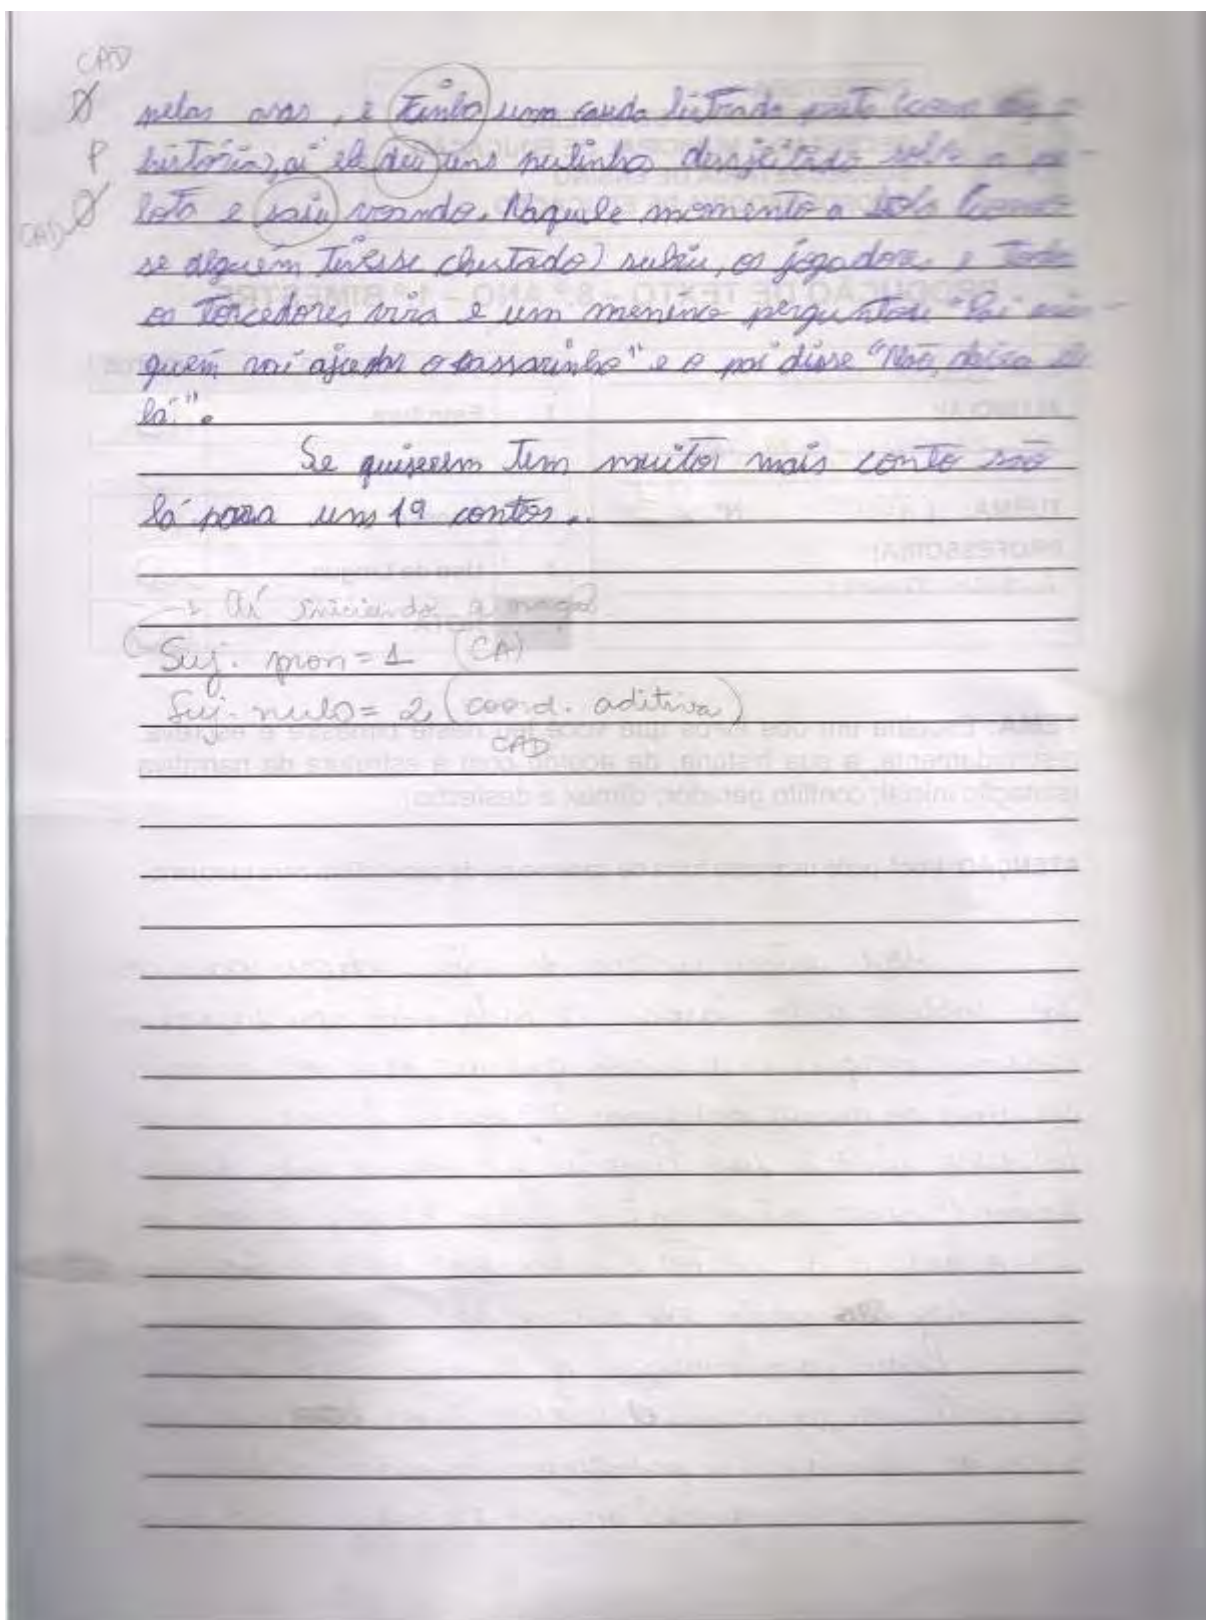 CAD
Ø pelas asas, e tinha uma cauda listrada preta (como na
P história, aí ele deu uns pulinho desajeitado sobre a pe-
CAD Ø lota e saiu voando. Naquele momento a bola (como
se alguém tivesse chutado) subiu, os jogadores e todo
os torcedores vira e um menino perguntou "Pai nin-
guém vai ajudar o passarinho" e o pai disse "Não, deixa ele
lá".
Se quiserem tem muitos mais conto são
lá para uns 19 contos.
→ Aí iniciando a oração
Suj. pron = 1 (CA)
Suj. nulo = 2 (coord. aditiva)
CAD